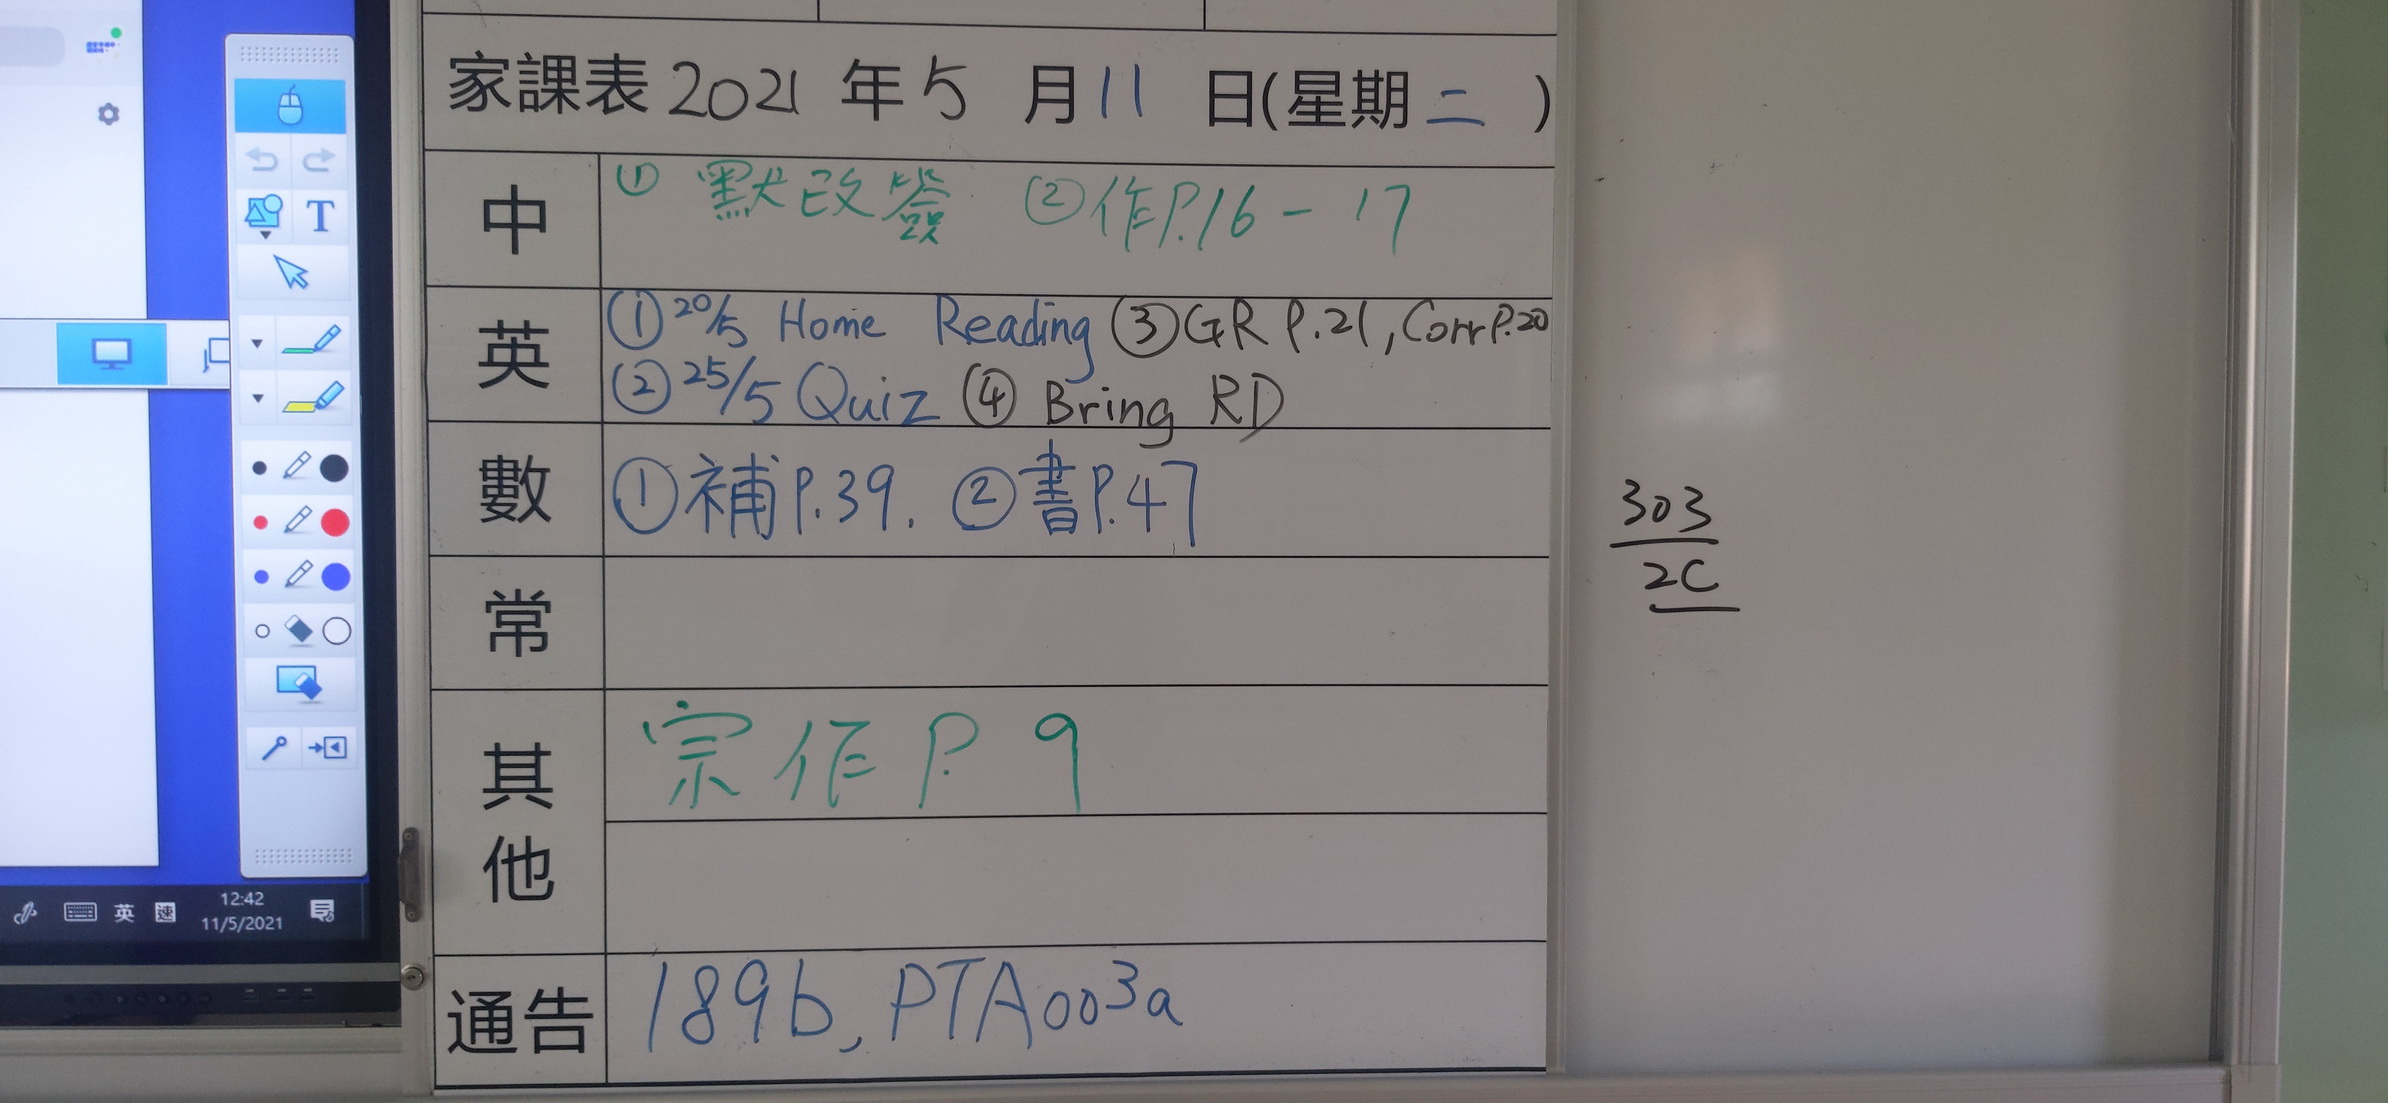 家課表 2021 年 5 月 11 日(星期 二 )
中 ① 默改簽 ② 作P.16-17
英 ① 20/5 Home Reading ③ GR P.21, Corr P.20
② 25/5 Quiz ④ Bring RD
數 ① 補P.39. ② 書P.47
常
其他 宗作P.9
通告 189b, PTA003a
303
2C
T
英 速 12:42
11/5/2021